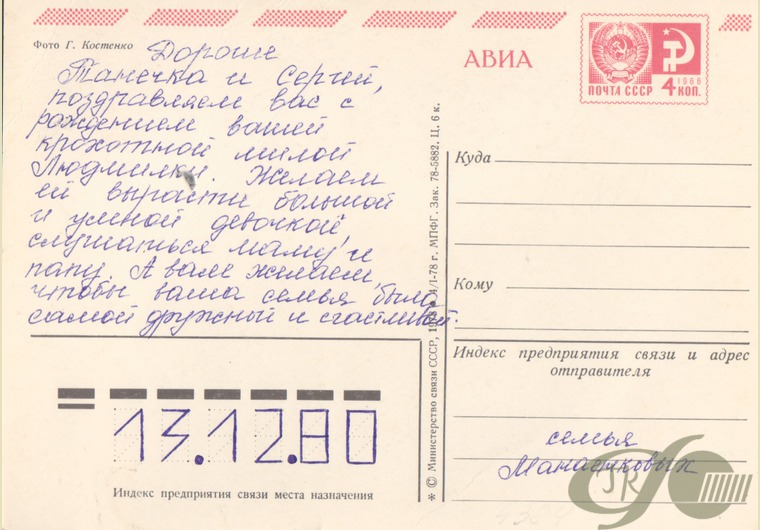 Фото Г. Костенко
Дорогие
Танечка и Сергей,
поздравляем вас с
рождением вашей
крохотной милой
Людмилки. Желаем
ей вырасти большой
и умной девочкой,
слушаться маму и
папу. А вам желаем,
чтобы ваша семья была
самой дружной и счастливой.
13.12.80
Индекс предприятия связи места назначения
* © Министерство связи СССР, 1978 г. МПФГ. Зак. 78-5882. Ц. 6 к.
АВИА
1966
ПОЧТА СССР 4 КОП.
Куда
Кому
Индекс предприятия связи и адрес
отправителя
семья
Манаенковых
JR